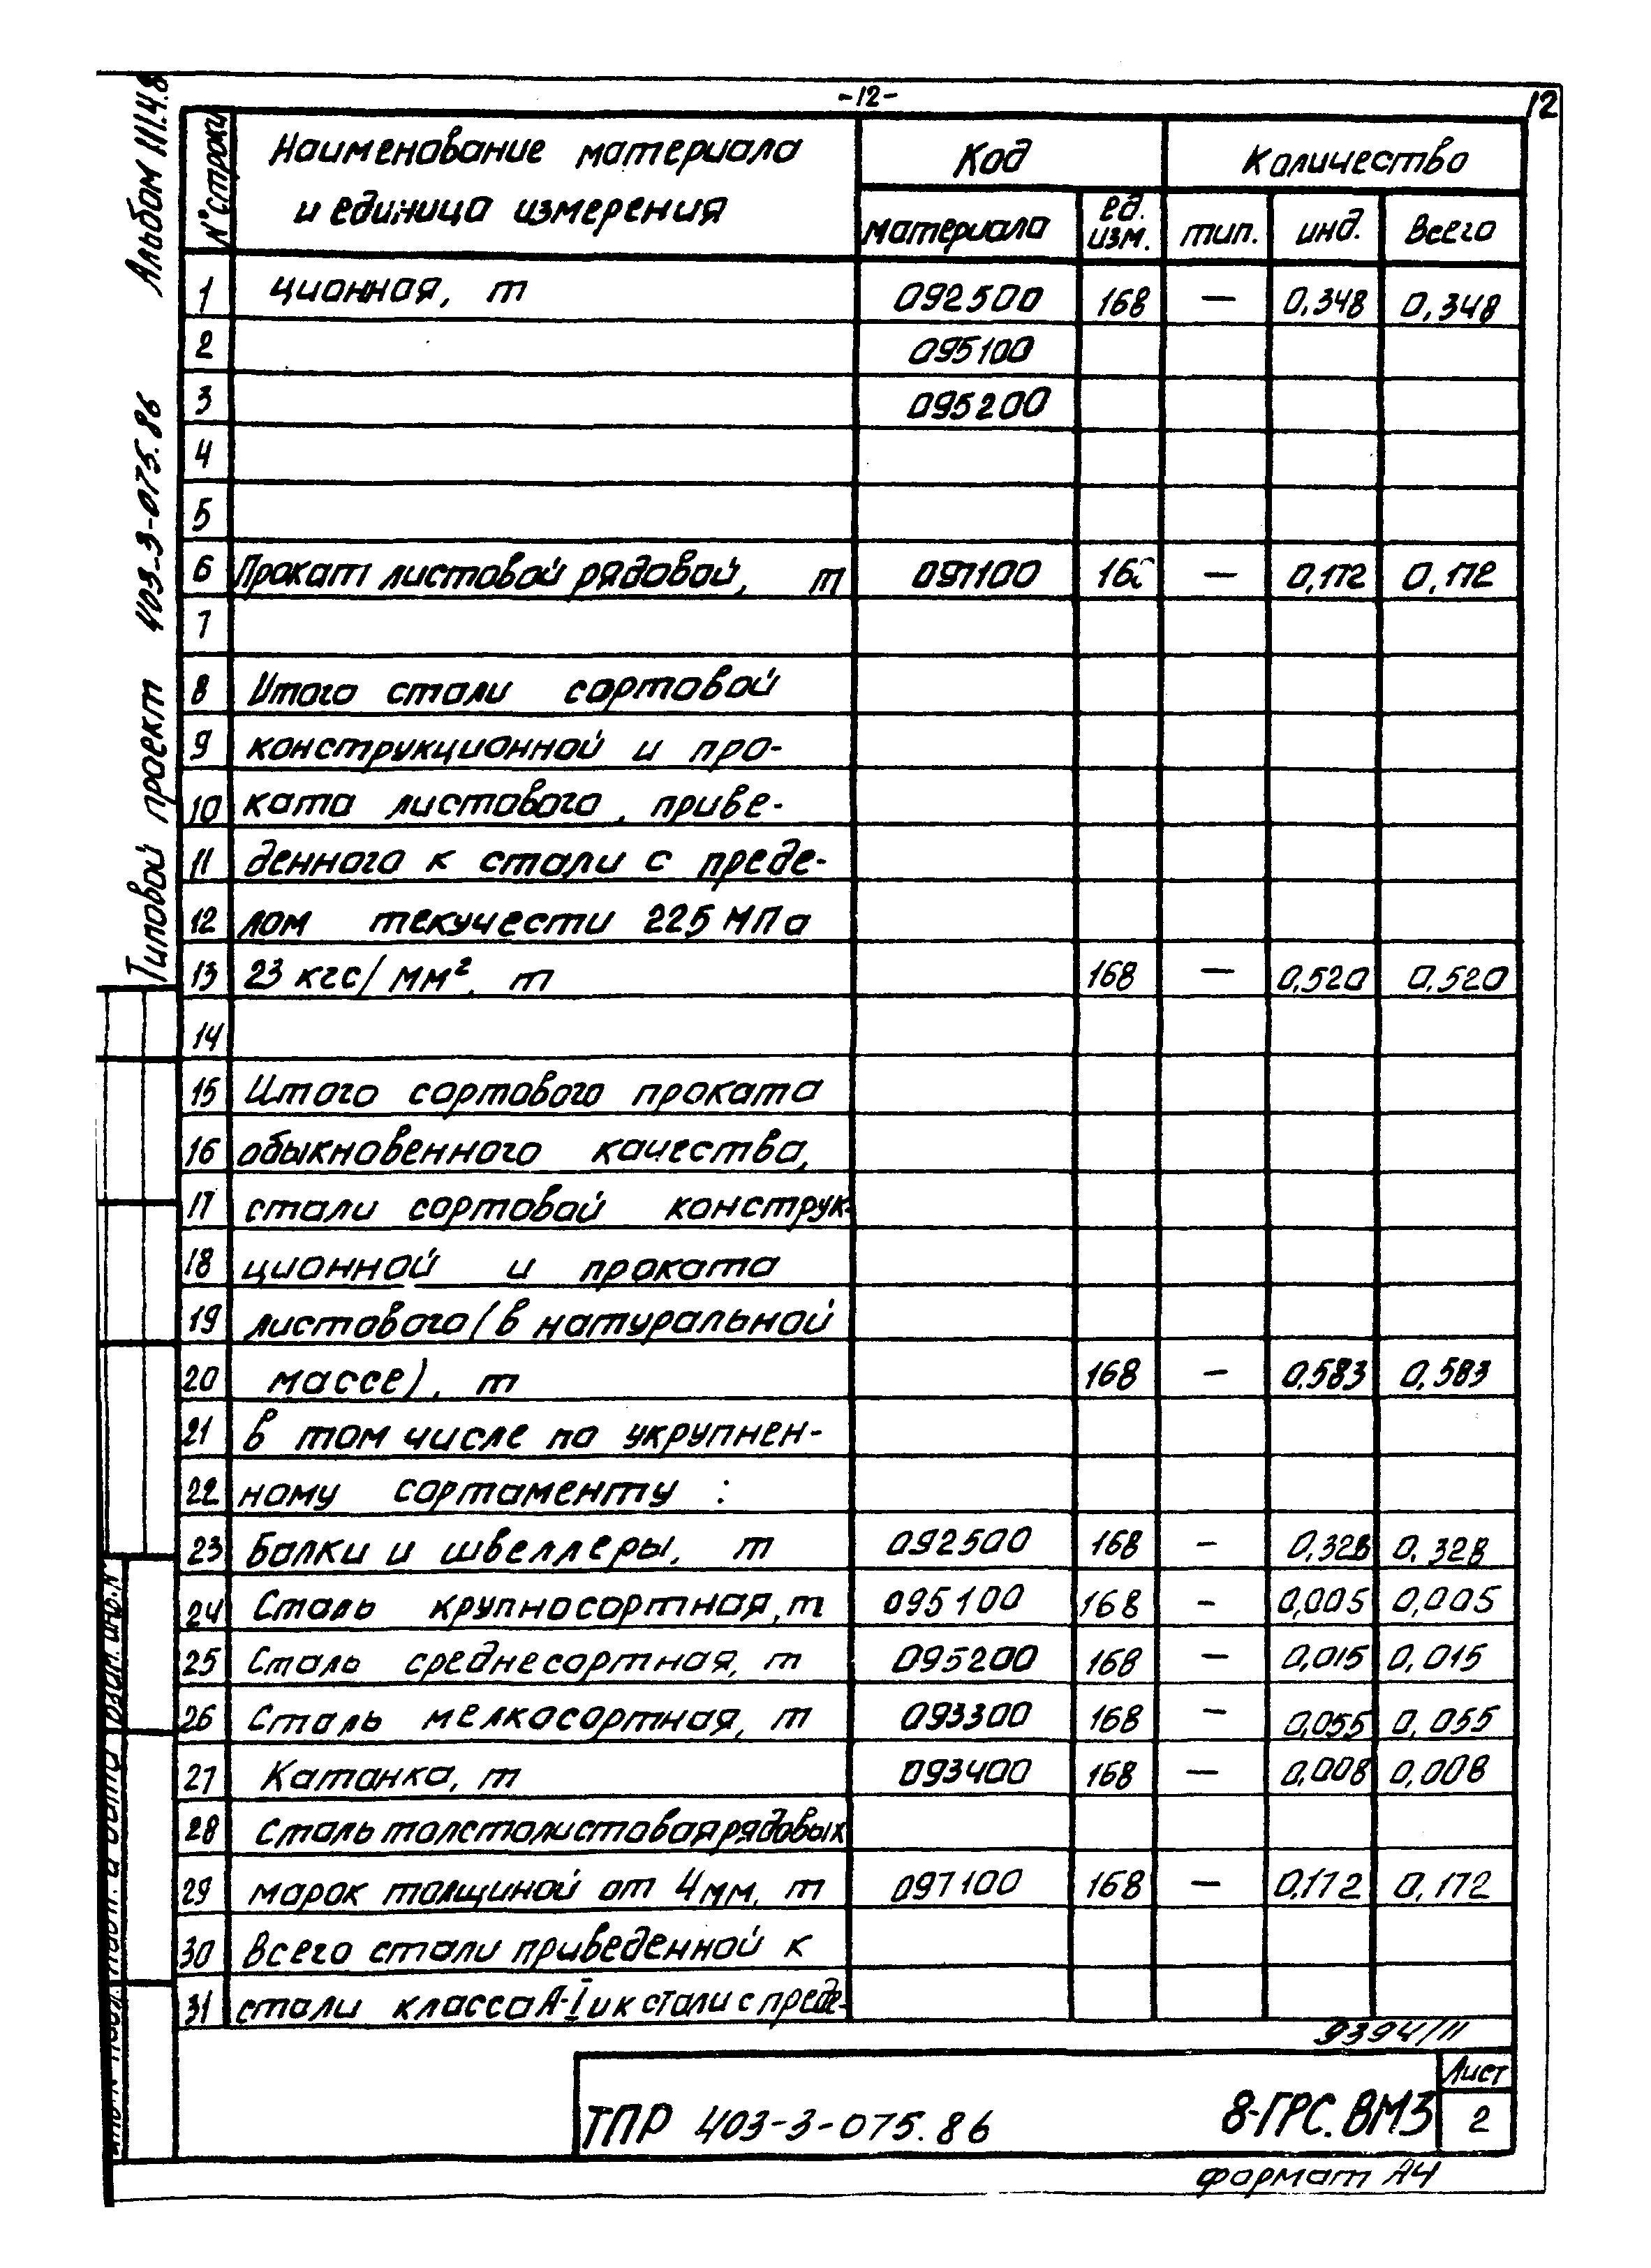 -12-
12
Альбом III.4.8
Типовой проект 403-3-075.86
№ строки
Наименование материала
и единица измерения
Код
Количество
материала
ед.
изм.
тип.
инд.
Всего
1 ционная, т 092500 168 — 0,348 0,348
2 095100
3 095200
4
5
6 Прокат листовой рядовой, т 097100 16 — 0,172 0,172
7
8 Итого стали сортовой
9 конструкционной и про-
10 ката листового, приве-
11 денного к стали с преде-
12 лом текучести 225 МПа
13 23 кгс/мм², т 168 — 0,520 0,520
14
15 Итого сортового проката
16 обыкновенного качества,
17 стали сортовой конструк-
18 ционной и проката
19 листового (в натуральной
20 массе), т 168 — 0,583 0,583
21 в том числе по укрупнен-
22 ному сортаменту :
23 Балки и швеллеры, т 092500 168 — 0,328 0,328
24 Сталь крупносортная, т 095100 168 — 0,005 0,005
25 Сталь среднесортная, т 095200 168 — 0,015 0,015
26 Сталь мелкосортная, т 093300 168 — 0,055 0,055
27 Катанка, т 093400 168 — 0,008 0,008
28 Сталь толстолистовая рядовых
29 марок толщиной от 4 мм, т 097100 168 — 0,172 0,172
30 Всего стали приведенной к
31 стали класса А-I и к стали с преде-
9394/11
ТПР 403-3-075.86
8-ГРС.ВМ3
Лист
2
формат А4
Взам. инв. №
Подп. и дата
Инв. № подл.